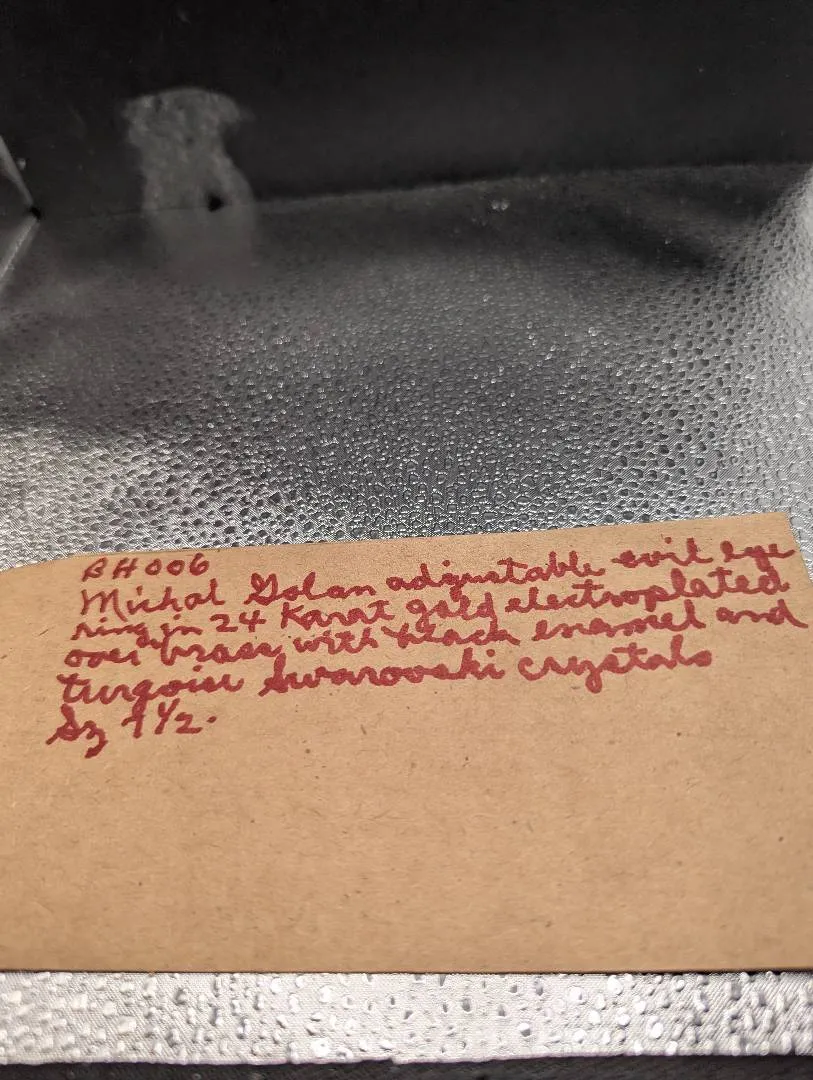 BH006
Michal Golan adjustable evil eye
ring in 24 Karat gold electroplated
over brass with black enamel and
turqoise Swarovski crystals
Sz 7 1/2.